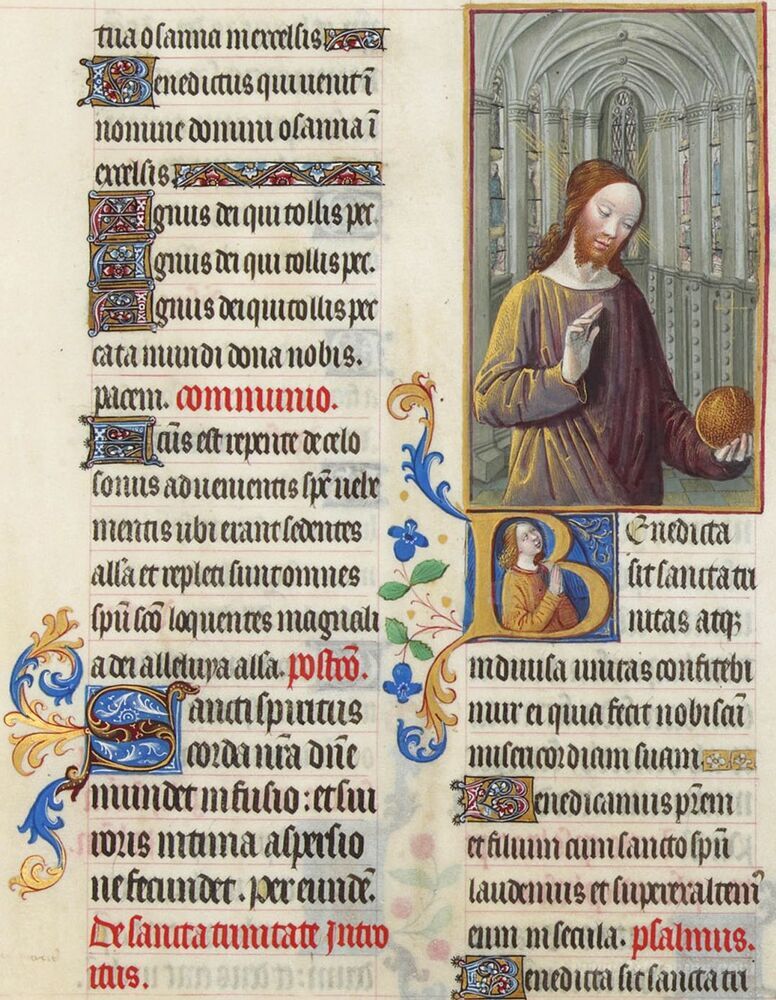 tua osanna in excelsis
Benedictus qui uenit ī
nomine domini osanna ī
excelsis.
Agnus dei qui tollis pec.
Agnus dei qui tollis pec.
Agnus dei qui tollis pec
cata mundi dona nobis.
pacem. communio.
Factus est repente de celo
sonus aduenientis sp̄c uehe
mentis ubi erant sedentes
all'a et repleti sunt omnes
sp̄u sc̄o loquentes magnali
a dei alleluya all'a. postcō.
Sancti spiritus
corda nr̄a dn̄e
mundet infusio: et sui
roris intima aspersio
ne fecundet. per eundē.
De sancta trinitate Intro
itus.
Benedicta
sit sancta tri
nitas atqȝ
indiuisa unitas confitebi
mur ei quia fecit nobiscū
misericordiam suam
Benedicamus pr̄em
et filium cum sancto sp̄u
laudemus et superexaltem'
eum in secula. psalmus.
Benedicta sit sancta tri